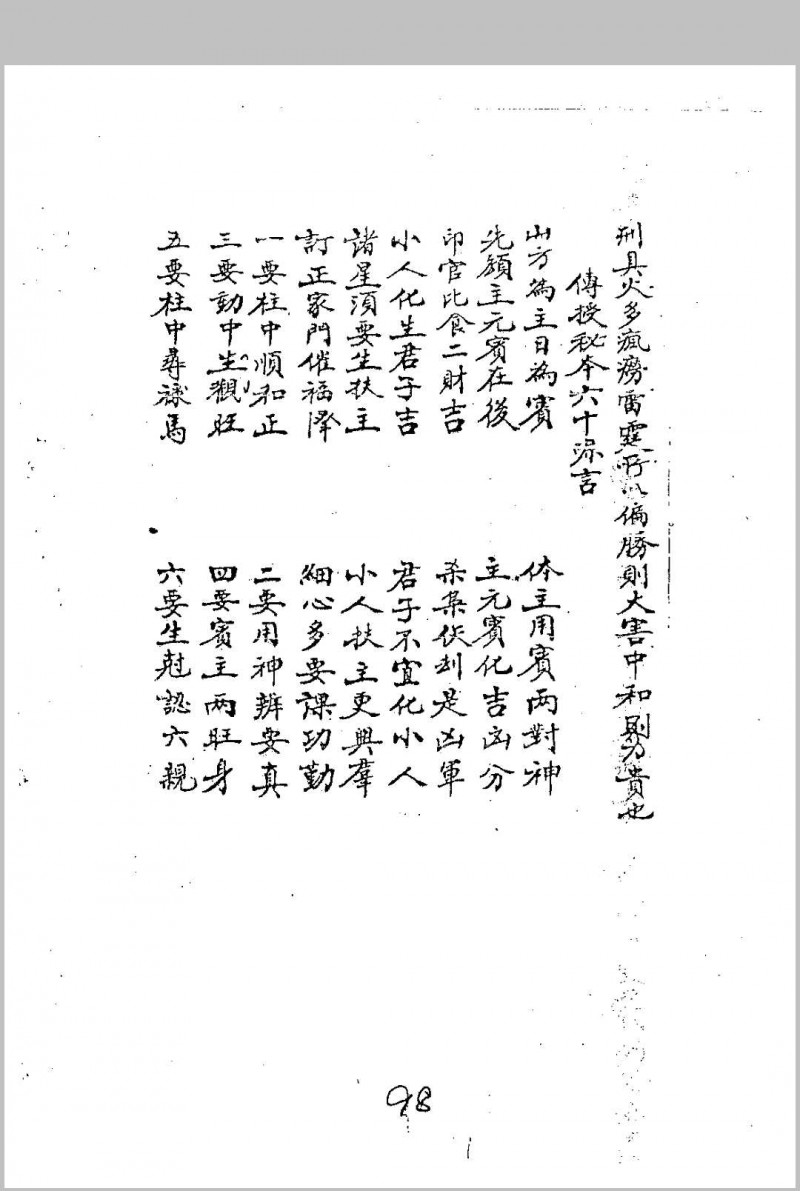 刑具火多瘋癆雷霆所以偏勝則大害中和則為貴也
傳授秘本六十課言
山方為主日為賓
体主用賓兩對神
先顧主元賓在後
主元賓化吉凶分
印官比食二財吉
杀梟伤刦是凶軍
小人化生君子吉
君子不宜化小人
諸星須要生扶主
小人扶主更興羣
訂正家門催福澤
細心多要課功勤
一要柱中順和正
二要用神辨安真
三要動中生觀旺
四要賓主兩旺身
五要柱中尋祿馬
六要生尅認六親
98